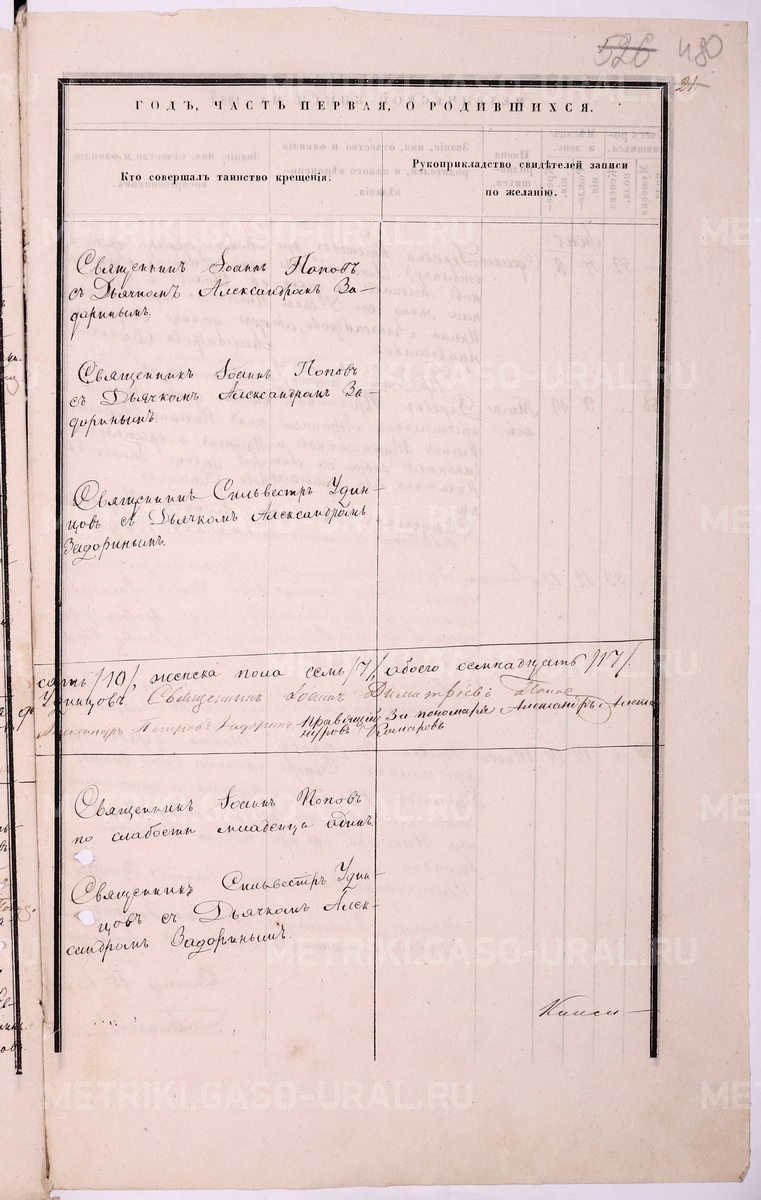 526 480
21
ГОДЪ, ЧАСТЬ ПЕРВАЯ, О РОДИВШИХСЯ.
Кто совершалъ таинство крещенія.
Рукоприкладство свидѣтелей записи
по желанію.
Священникъ Іоаннъ Поповъ
съ Дьячкомъ Александромъ За-
доринымъ.
Священникъ Іоаннъ Поповъ
съ Дьячкомъ Александромъ За-
доринымъ.
Священникъ Сильвестръ Удин-
цовъ съ Дьячкомъ Александромъ
Задоринымъ.
сять /10/, женска пола семь /7/, обоего семнадцать /17/.
Удинцовъ. Священникъ Іоаннъ Димитріевъ Попо
Александръ Петровъ Задоринъ. Правящій за пономаря Александръ
Комаровъ
Священникъ Іоаннъ Поповъ
по слабости младенца одинъ.
Священникъ Сильвестръ Удин-
цовъ съ Дьячкомъ Алек-
сандромъ Задоринымъ.
METRIKI.GASO-URAL.RU